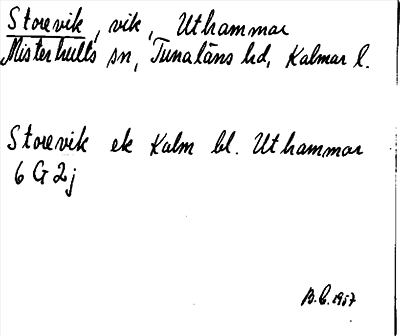 Storevik, vik, Uthammar
Misterhults sn, Tunaläns hd, Kalmar l.
Storevik ek Kalm bl. Uthammar
6 G 2j
B.E. 1957